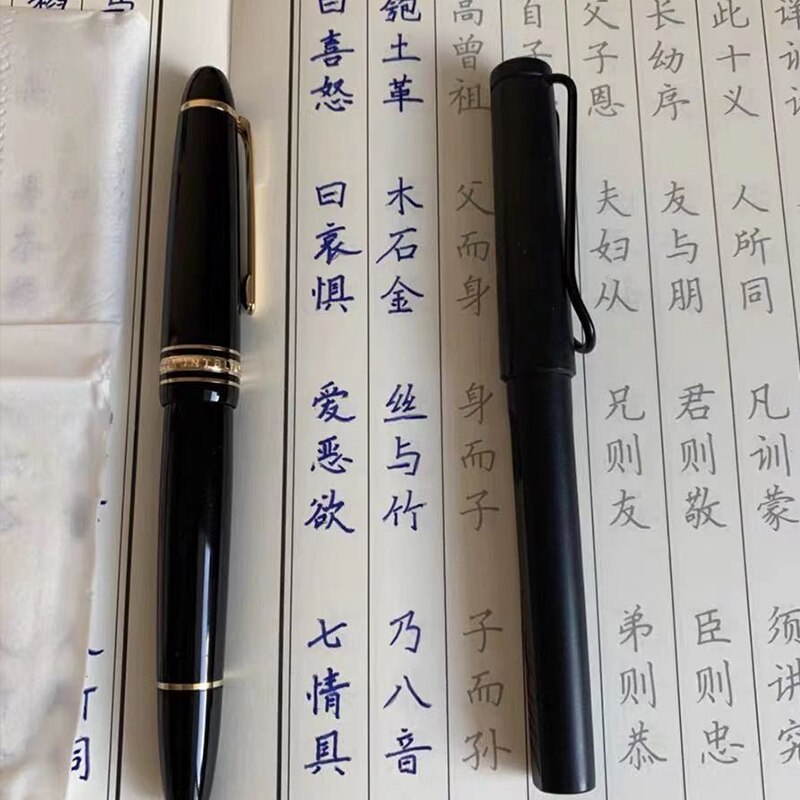 曰喜怒 曰哀惧 爱恶欲 七情具
匏土革 木石金 丝与竹 乃八音
高曾祖 父而身 身而子 子而孙
自子
父子恩 夫妇从 兄则友 弟则恭
长幼序 友与朋 君则敬 臣则忠
此十义 人所同 凡训蒙 须讲究
详训
NTBLA